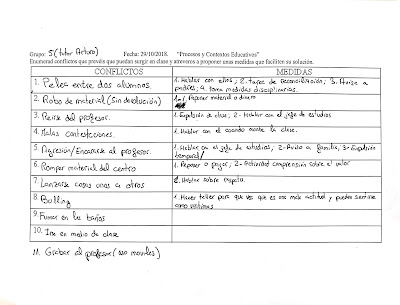 Grupo: 5 (tutor Arturo) Fecha: 29/10/2018. "Procesos y Contextos Educativos"
Enumerad conflictos que preveis que puedan surgir en clase y atreveros a proponer unas medidas que faciliten su solución.
CONFLICTOS MEDIDAS
1. Pelea entre dos alumnos 1. Hablar con ellos; 2. tarea de reconciliación; 3. Aviso a
padres; 4. toma medidas disciplinarias.
2. Robo de material (sin devolución) 1. Reponer material o dinero
3. Reirse del profesor. 1. Expulsión de clase; 2- Hablar con el jefe de estudios
4. Malas contestaciones. 1. Hablar con el cuando acabe la clase.
5. Agresión/Encararse al profesor. 1. Hablar con el jefe de estudios; 2- Aviso a familia; 3- Expulsión
temporal
6. Romper material del centro 1. Reponer o pagar; 2- Actividad comprensión sobre el valor
7. Lanzarse cosas unos a otros 1. Hablar sobre respeto.
8. Bulling 1. Hacer taller para que vea que es una mala actitud y pueden sentirse
como víctimas
9. Fumar en los baños
10. Irse en medio de clase
11. Grabar al profesor (uso moviles)